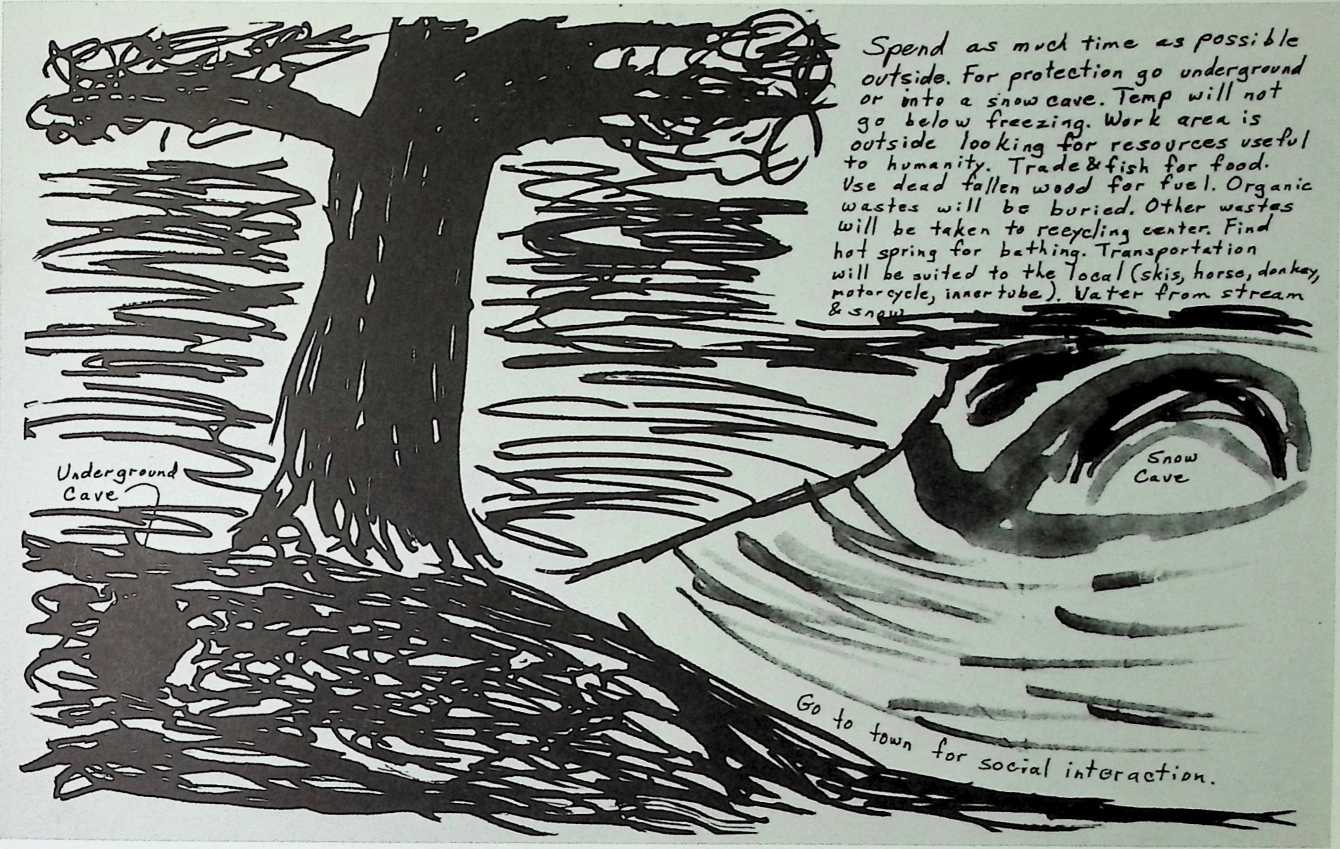 Spend as much time as possible
outside. For protection go underground
or into a snow cave. Temp will not
go below freezing. Work area is
outside looking for resources useful
to humanity. Trade & fish for food.
Use dead fallen wood for fuel. Organic
wastes will be buried. Other wastes
will be taken to recycling center. Find
hot spring for bathing. Transportation
will be suited to the local (skis, horse, donkey,
motorcycle, inner tube). Water from stream
& snow
Underground
Cave
Snow
Cave
Go to town for social interaction.